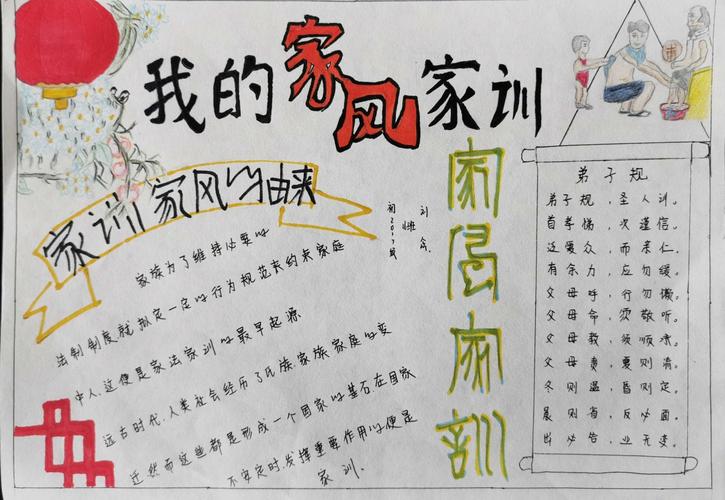 我的家风家训
家训家风的由来
家族为了维持必要的
法制制度就拟定一定的行为规范来约束家庭
中人,这便是家法家训的最早起源
远古时代,人类社会经历了氏族家族家庭的变
迁然而这些都是形成一个国家的基石在国家
不安定时,发挥重要作用的便是
家训.
家
家
训
弟子规
弟子规,圣人训。
首孝悌,次谨信。
泛爱众,而亲仁。
有余力,应勿缓。
父母呼,行勿懒。
父母命,须敬听。
父母教,须顺承。
父母责,
冬则温,
晨则省,反必面。
出必告,业无变。